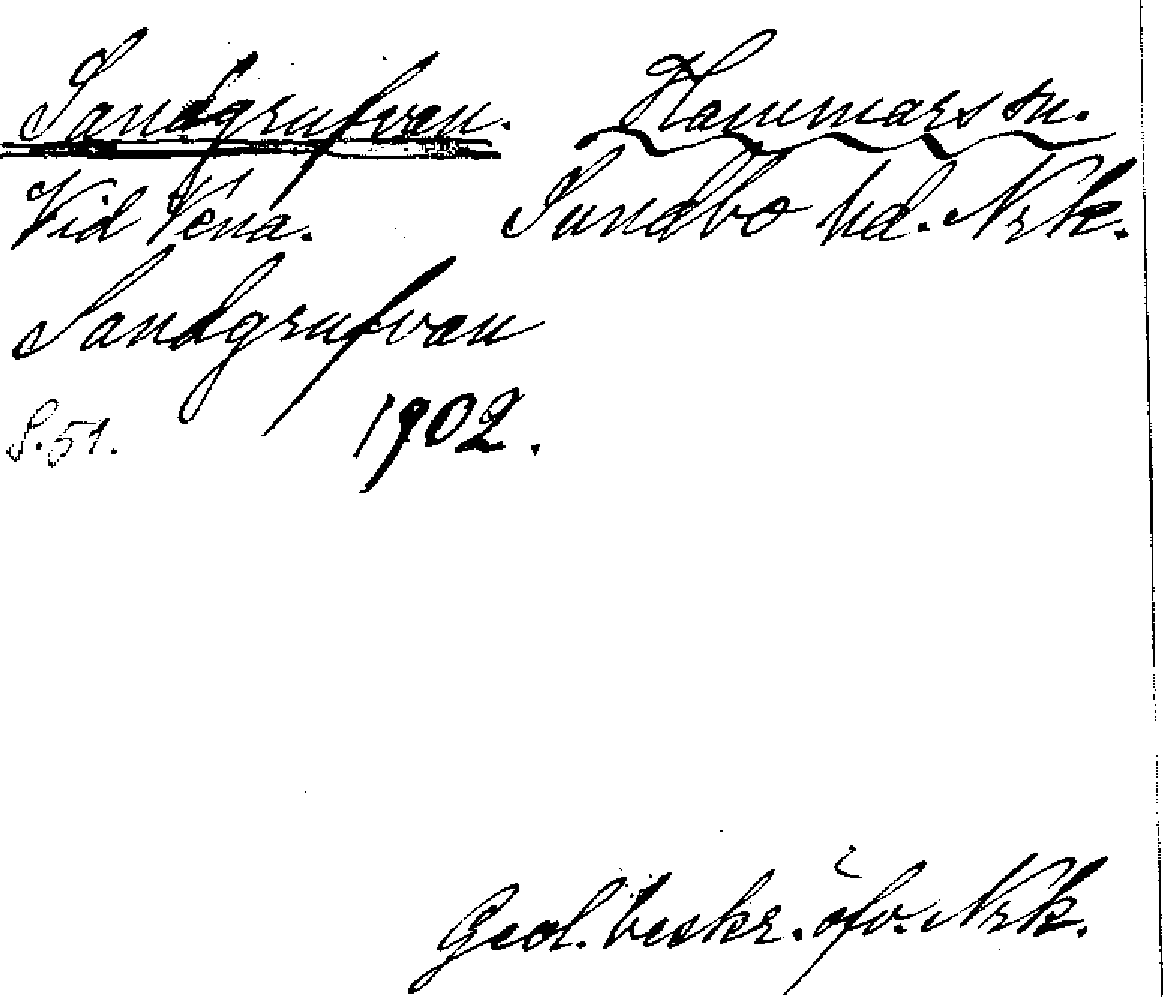 Sandgrufvan. Hammars sn.
Vid Vena. Sundbo hd. Nrk.
Sandgrufvan
S. 51. 1902.
Geol. beskr. öfv. Nrk.